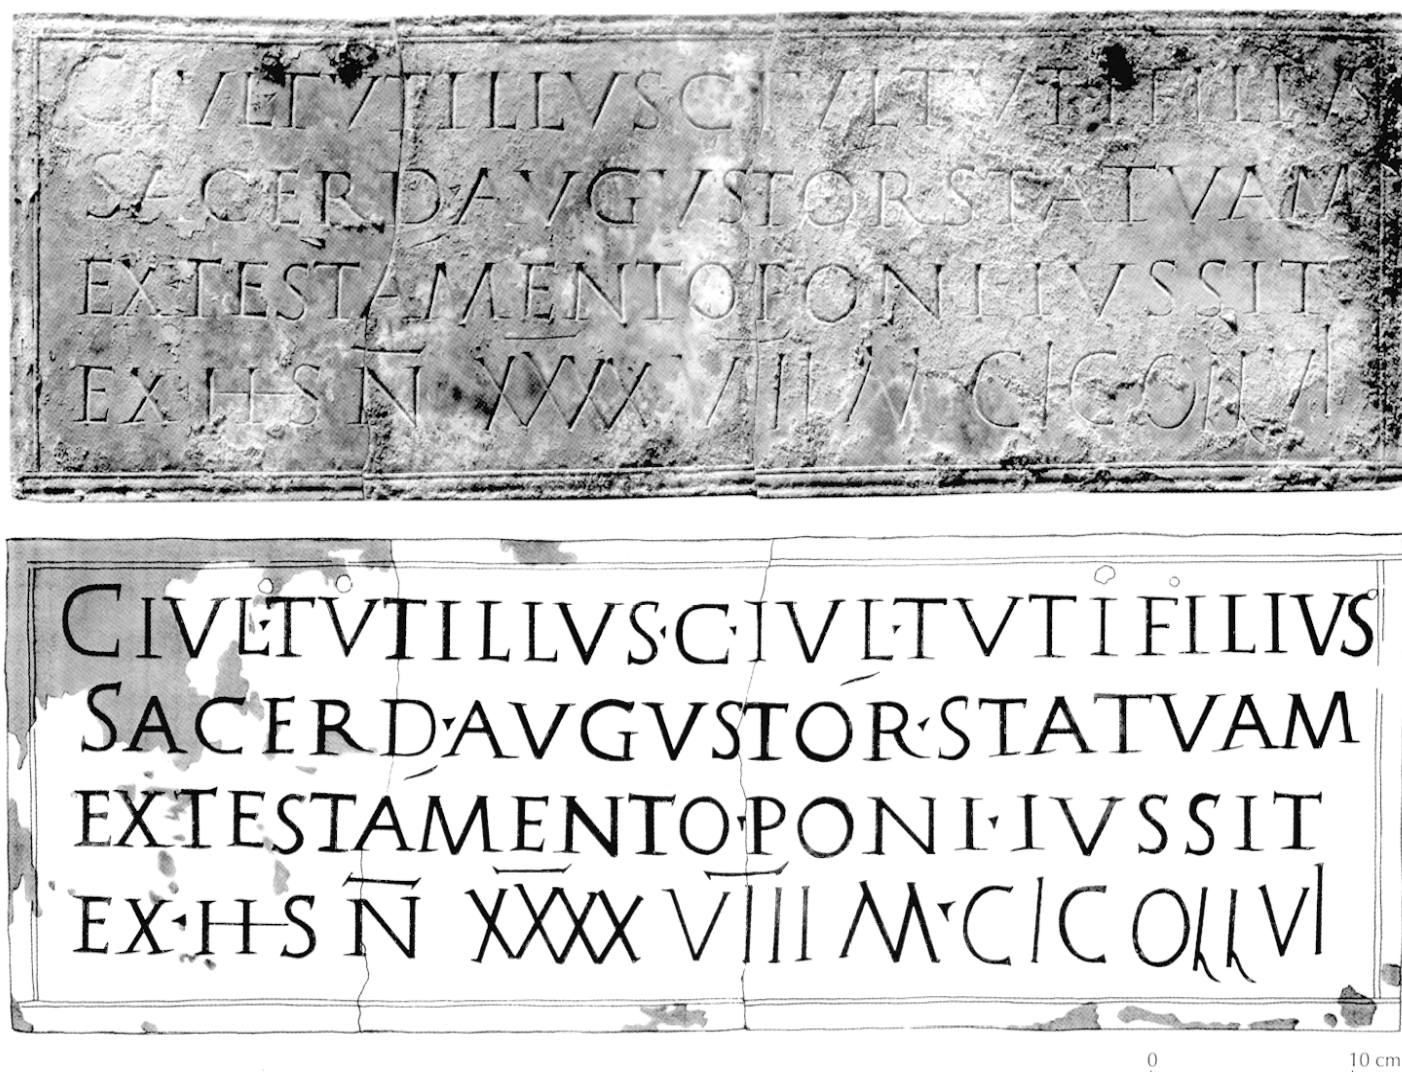 C IVL T VTILLVS C IVL T VTI FILIVS
SACERD AVGVSTOR STATVAM
EX TESTAMENTO PONI IVSSIT
EX HS N XXXX VIII M CICOLLVI
C IVL·T VTILLVS·C·IVL·T VTI FILIVS
SACERD·AVGVSTOR·STATVAM
EX TESTAMENTO·PONI·IVSSIT
EX·HS N XXXX VIII M·CICOLLVI
0 10 cm